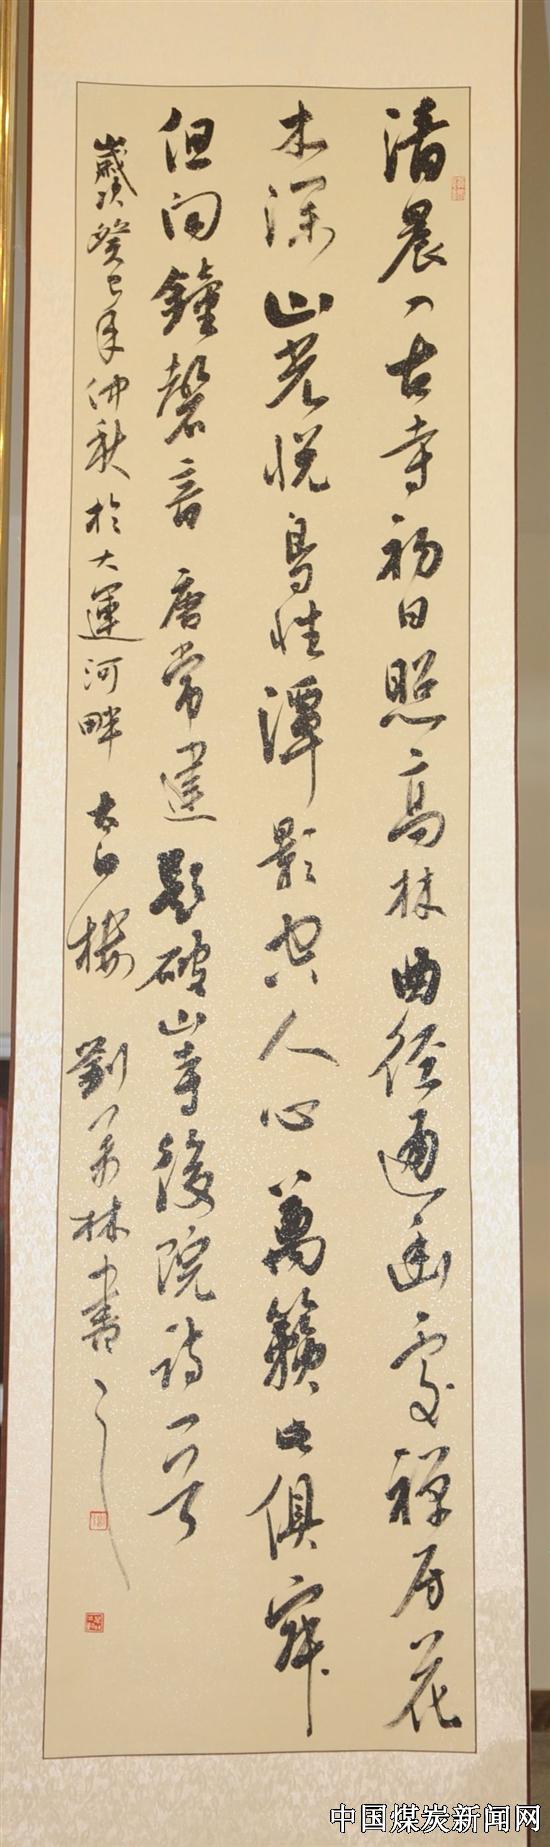 清晨入古寺初日照高林曲径通幽處禅房花
木深山光悦鸟性潭影空人心萬籁此俱寂
但闻鐘磬音 唐常建题破山寺後院诗一首
歲次癸巳年仲秋於大運河畔太白楼 劉芳林書
中国煤炭新闻网